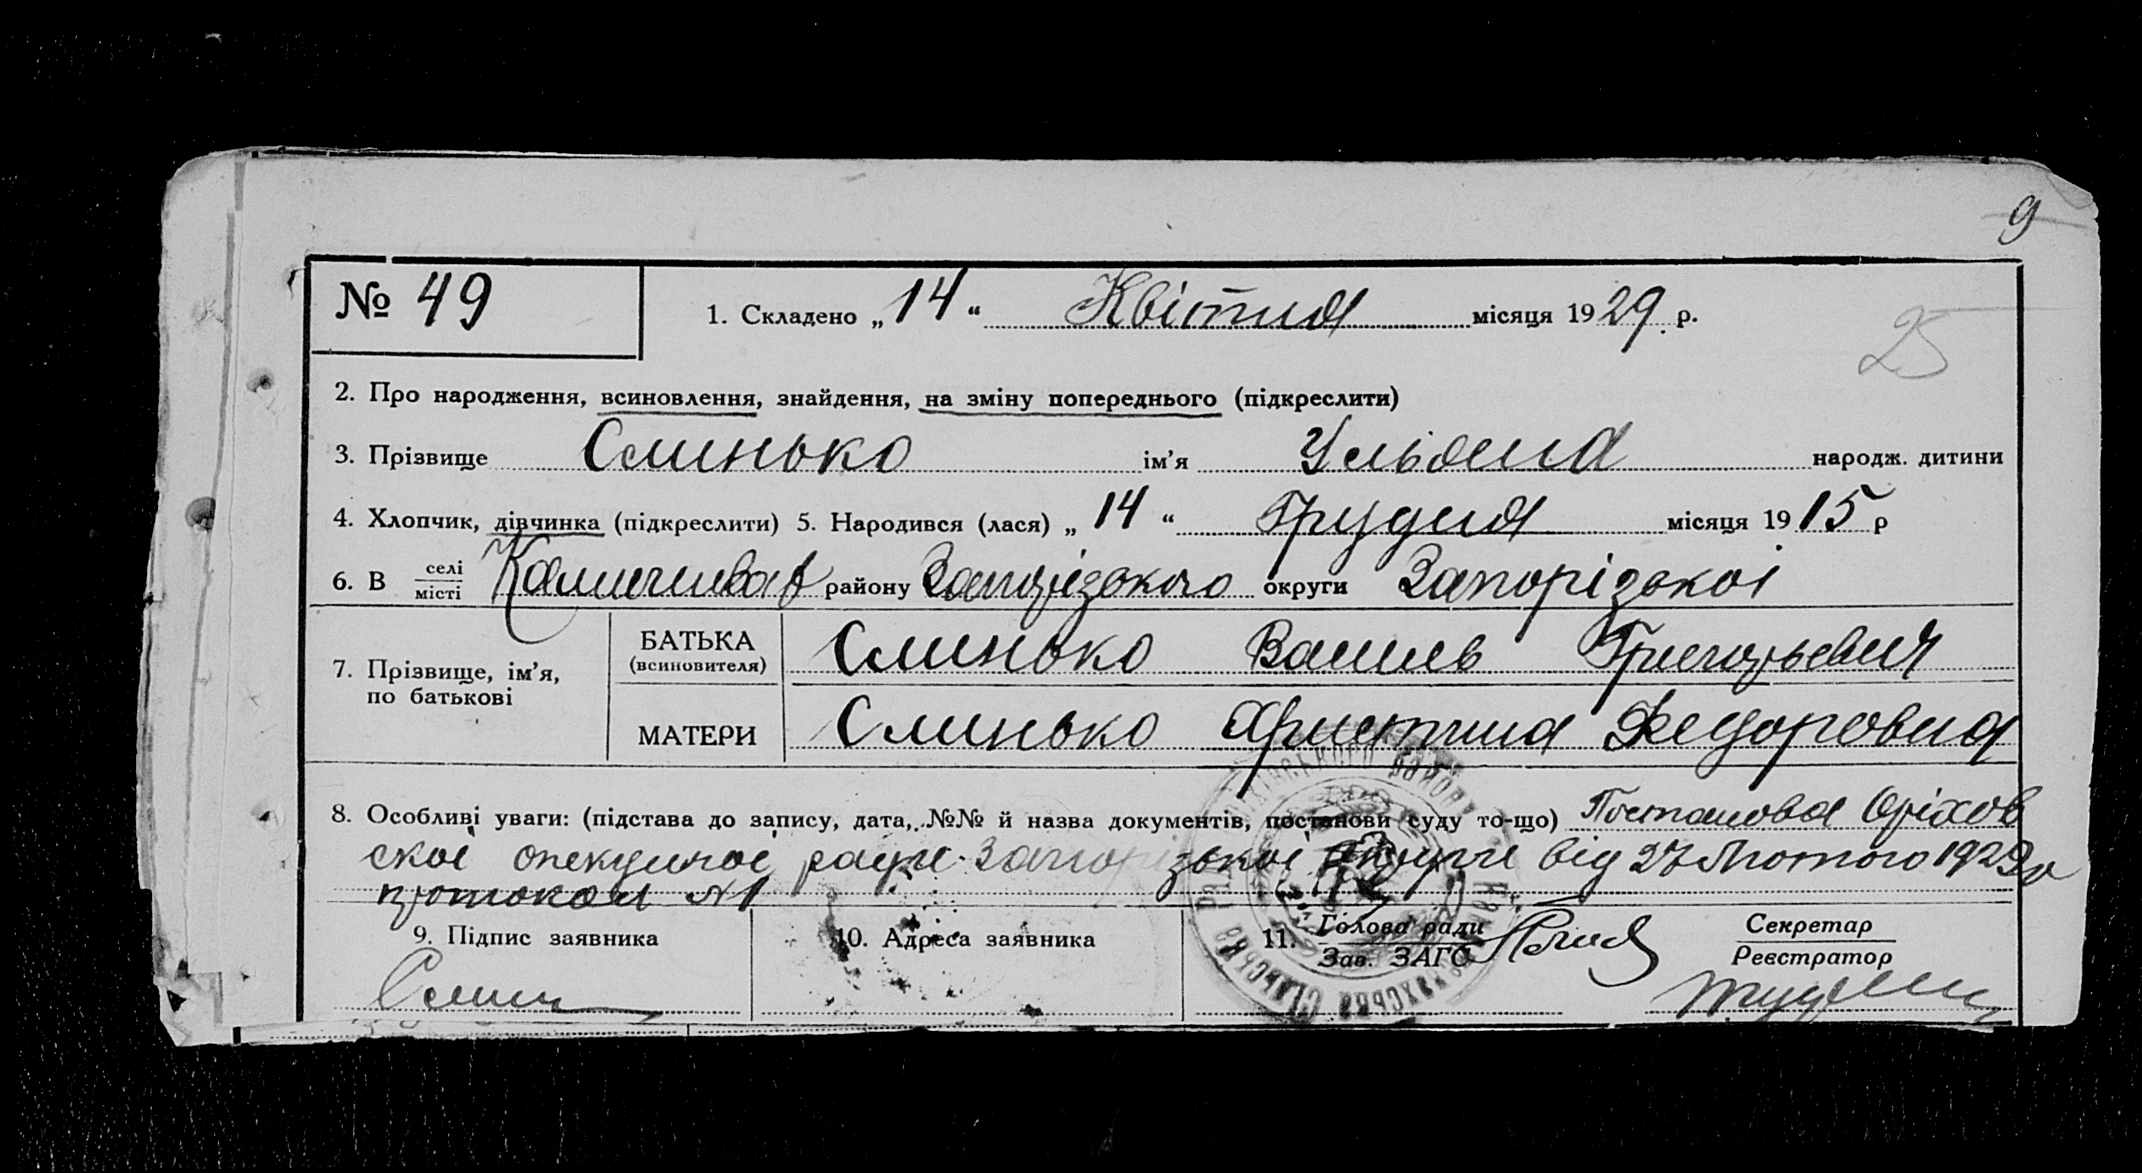 9
№ 49
1. Складено „14“ Квітня місяця 1929 р.
25
2. Про народження, всиновлення, знайдення, на зміну попереднього (підкреслити)
3. Прізвище Слинько ім’я Ульяна народж. дитини
4. Хлопчик, дівчинка (підкреслити) 5. Народився (лася) „14“ Грудня місяця 1915 р
6. В селі місті району Запорізького округи Запорізькоі
7. Прізвище, ім’я, по батькові
БАТЬКА (всиновителя) Слинько Василь Григорьевич
МАТЕРИ Слинько Христина Федоровна
8. Особливі уваги: (підстава до запису, дата, №№ й назва документів, постанови суду то-що) Постанова Оріхов
ськоі опекунчоі ради Запорізькоі округи від 27 Лютого 1929 р
протокол №1
9. Підпис заявника
10. Адреса заявника
11. Голова ради
Зав. ЗАГС
Секретар
Реєстратор